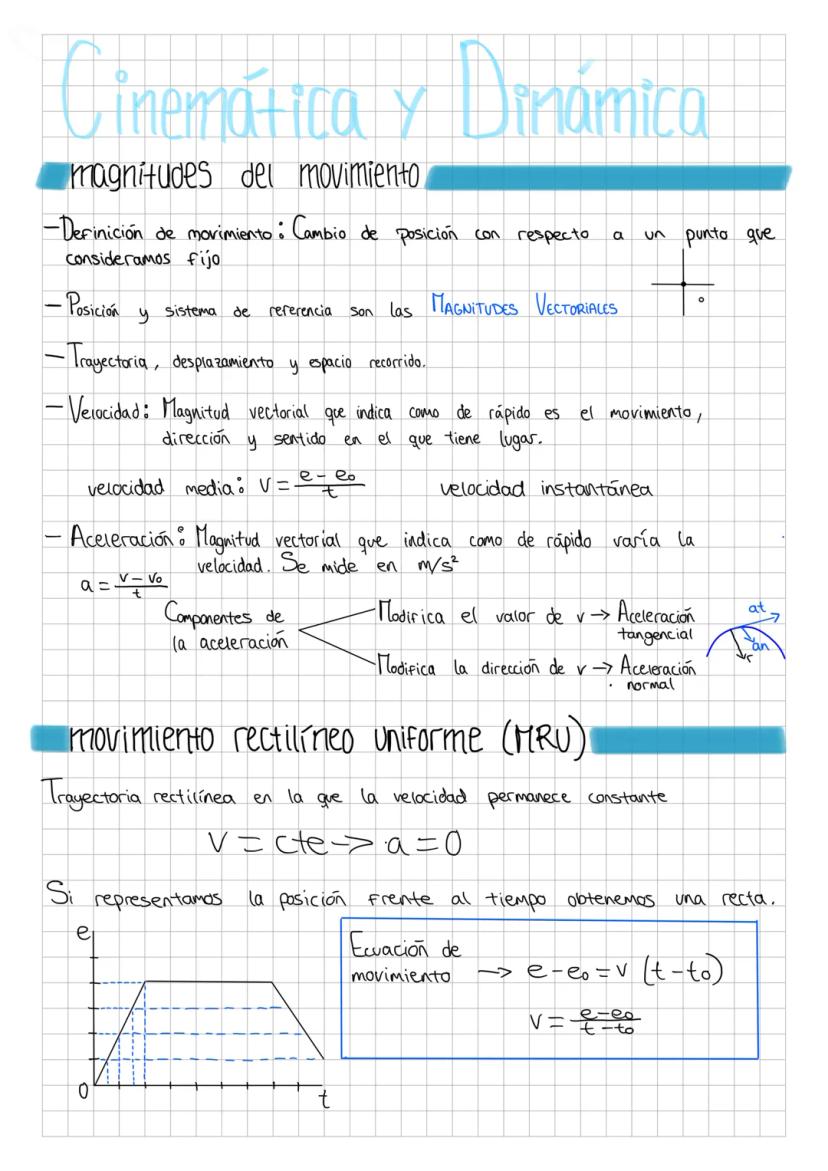 Cinemática y Dinámica
magnitudes del movimiento
-Definición de movimiento: Cambio de posición con respecto a un punto que
consideramos fijo
- Posición y sistema de referencia son las MAGNITUDES VECTORIALES
- Trayectoria, desplazamiento y espacio recorrido.
- Velocidad: Magnitud vectorial que indica como de rápido es el movimiento,
dirección y sentido en el que tiene lugar.
velocidad media: v = e - e₀ / t velocidad instantánea
- Aceleración: Magnitud vectorial que indica como de rápido varía la
velocidad. Se mide en m/s²
a = v - v₀ / t
Componentes de
la aceleración
Modifica el valor de v → Aceleración
tangencial
Modifica la dirección de v → Aceleración
normal
at
an
r
movimiento rectilíneo uniforme (MRU)
Trayectoria rectilínea en la que la velocidad permanece constante
v = cte -> a = 0
Si representamos la posición frente al tiempo obtenemos una recta.
e
0
t
Ecuación de
movimiento → e - e₀ = v (t - t₀)
v = e - e₀ / t - t₀